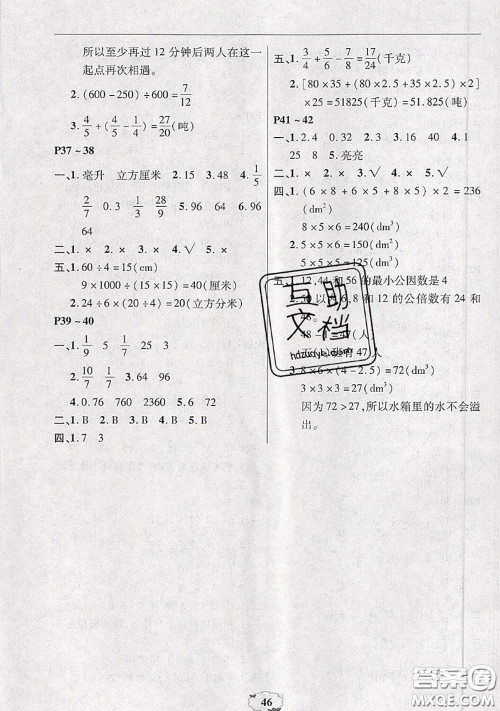 所以至少再过 12 分钟后两人在这一
起点再次相遇。
2.(600-250)÷600=7/12
3. 4/5+(4/5-1/4)=27/20(吨)
P37~38
一、1.毫升 立方厘米 2.15 3.48 4. 1/5
2/7 0.3 1/14 28/9 5.9 6.94 7.64
64
二、1.× 2.× 3.× 4.√ 5.√
五、1.60÷4=15(cm)
9×1000÷(15×15)=40(厘米)
2.24÷6×(20÷4)=20(立方分米)
P39~40
一、1. 1/9 5 1/7 25 3
2. 10/7 1/7 3.30 36
4.0.76 760 2360 2.36
二、1.B 2.B 3.B 4.B
四、1.7 3
五、1. 3/4+5/6-7/8=17/24(千克)
2.[80×35+(80×25+35×25)×2]
×25=51825(千克)=51.825(吨)
P41~42
一、1.2 0.4 0.32 2.3 3.40 4.1
25 8 5.亮亮
二、1.× 2.√ 3.√ 4.× 5.×
四、1.(6×8+6×5+8×5)×2=236
(dm²)
8×5×6=240(dm³)
2.5×5×6=150(dm²)
5×5×5=125(dm³)
五、1.12,44和56的最小公因数是4
8和12的公倍数有24和
48。
48-1=47(人)
47(人)
3.8×6×(4-2.5)=72(dm³)
3×3×3=27(dm³)
因为72>27,所以水箱里的水不会溢
出。
互助
文档
hdzuoye.com
46
答案圈
MXQE.COM